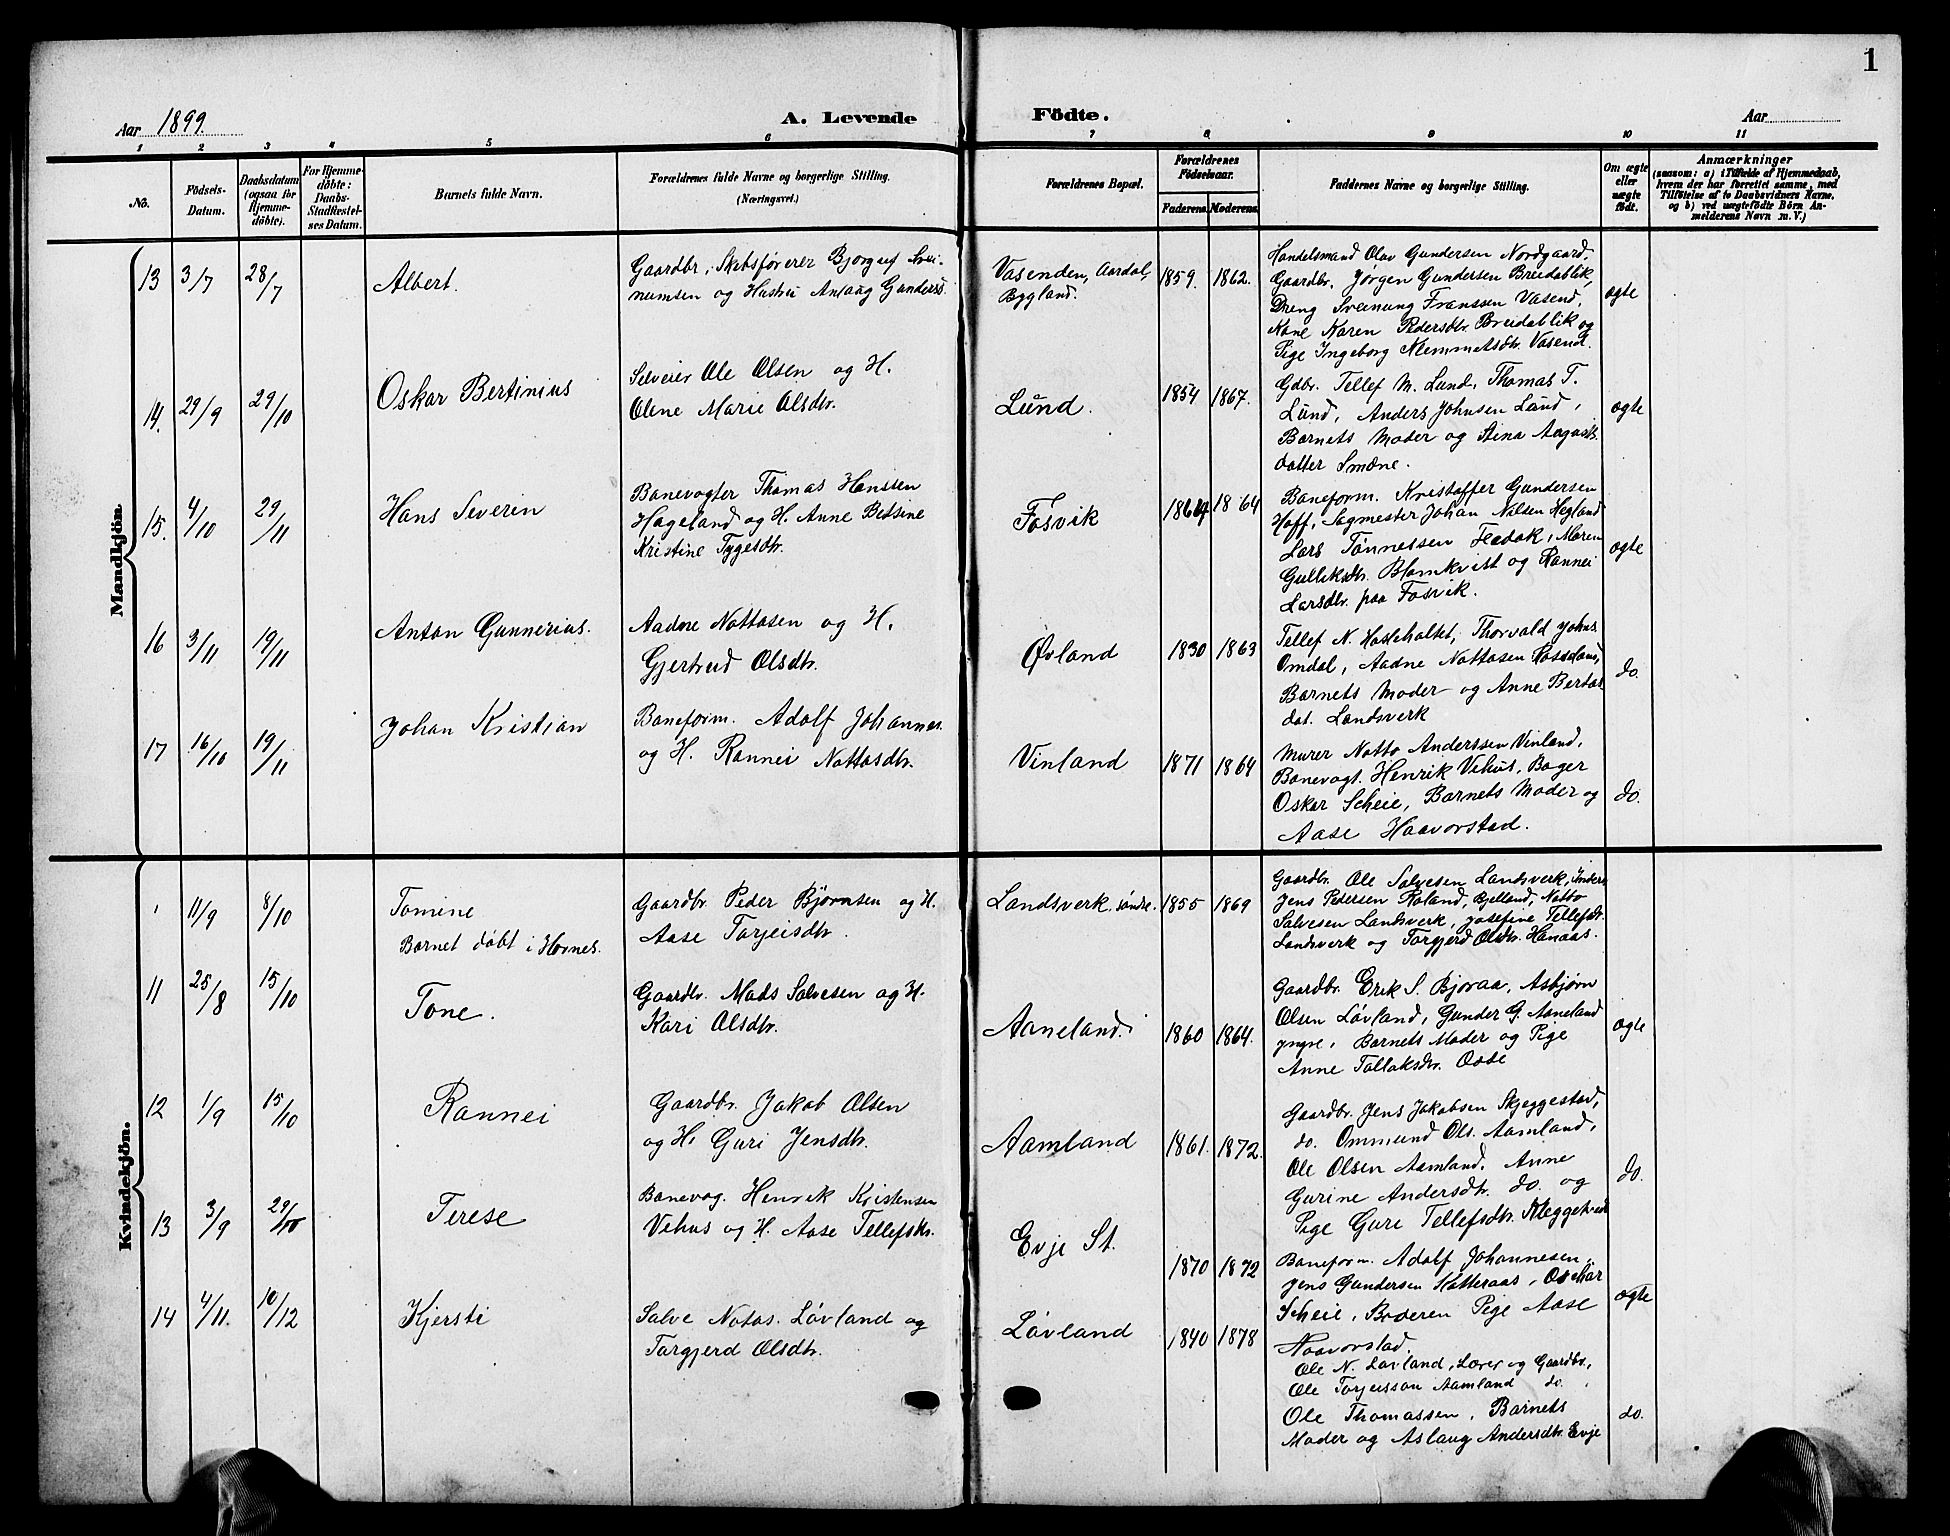 1
Aar 1899.
A. Levende Födte.
Aar
1 2 3 4 5 6 7 8 9 10 11
No.
Födsels-
Datum.
Daabsdatum
(ogsaa for
Hjemme-
döbte).
For Hjemme-
döbte:
Daabs-
Stadfæstel-
ses Datum.
Barnets fulde Navn.
Forældrenes fulde Navne og borgerlige Stilling.
(Næringsvei.)
Forældrenes Bopæl.
Forældrenes
Födselsaar.
Faderens. Moderens.
Faddernes Navne og borgerlige Stilling.
Om ægte
eller
uægte
födt.
Anmærkninger
(saasom: a) i Tilfælde af Hjemmedaab,
hvem der har forrettet samme, med
Tilföielse af to Daabsvidners Navne,
og b) ved uægtefödte Börn An-
melderens Navn m. V.)
Mandkjön.
13 3/7 28/7
Albert.
Gaardbr, Skibsfører Bjorguf Svei-
numsen og Hustru Anlaug Gundersd.
Vasenden, Aardal,
Bygland.
1859. 1862.
Handelsmand Olav Gundersen Nordgaard,
Gaardbr. Jørgen Gundersen Breidablik,
Dreng Sveinung Franssen Vasend,
Kone Karen Pedersdtr. Breidablik og
Pige Ingeborg Klemmetsdtr. Vasend.
ægte
14. 29/9 29/10
Oskar Bertinius
Selveier Ole Olsen og H.
Oline Marie Olsdtr.
Lund.
1854 1867.
Gdbr. Tellef M. Lund, Thomas T.
Lund, Anders Johnsen Lund,
Barnets Moder og Stina Augusts
datter Smæne.
ægte
15. 4/10 29/11
Hans Severin
Banevogter Thomas Hanssen
Hageland og H. Anne Betsine
Kristine Tygesdtr.
Fosvik
1864 1864
Baneform. Kristoffer Gundersen
Hoff, Sagmester Johan Nilsen Hegland
Lars Tönnessen, Maren
Gulliksdtr. Blomkvist og Rannei
Larsdtr. paa Fosvik.
ægte
16 3/11 19/11
Anton Gunnerius.
Aadne Nottosen og H.
Gjertrud Olsdtr.
Øvland
1830 1863
Tellef N. Haslehaltet, Thorvald Johns.
Omdal, Aadne Nottosen
Barnets Moder og Anne Bertas
dat. Landsverk
do.
17 16/10 19/11
Johan Kristian
Baneform. Adolf Johannes.
og H. Rannei Nottosdtr.
Vinland
1871 1864
Murer Notto Anderssen Vinland,
Banevogt. Henrik Vehus, Bager
Oskar Scheie, Barnets Moder og
Aase Haavorstad.
do.
Kvindekjön.
11/9 8/10
Tomine
Barnet døbt i Hornes.
Gaardbr Peder Bjørnsen og H.
Aase Torjeisdtr.
Landsverk, søndre.
1855 1869
Gaardbr. Ole Salvesen Landsverk,
Jens Pedersen Roland, Gjelland, Notto
Salvesen Landsverk, Josefine Tellefsdtr.
Landsverk og Torgjerd Olsdtr. Hanaas.
11 25/8 15/10
Tone.
Gaardbr. Mads Salvesen og H.
Kari Olsdtr.
Aaneland
1860 1864.
Gaardbr. Erik S. Bjoraa, Asbjørn
Olsen Løvland, Gunder G. Aaneland
yngre, Barnets Moder og Pige
Anne Tallaksdtr. Odde
ægte
12 1/9 15/10
Rannei
Gaardbr. Jakob Olsen
og H. Guri Jensdtr.
Aamland
1861. 1872.
Gaardbr. Jens Jakobsen Skjeggestad,
do. Ommund Ols. Aamland,
Ole Olsen Aamland, Anne
Gurine Andersdtr. do. og
Pige Guri Tellefsdtr.
do.
13 3/9 29/10
Terese
Banevog. Henrik Kristensen
Vehus og H. Aase Tellefsdtr.
Evje St.
1870 1872
Baneform. Adolf Johannesen,
Jens Gundersen Katteraas, Oschar
Scheie, Moderen Pige Aase
Haavorstad.
ægte
14 4/11. 10/12
Kjersti
Salve Notos. Løvland og
Torgjerd Olsdtr.
Løvland
1840 1878
Ole N. Løvland, Lærer og Gaardbr.,
Ole Torjeisson Aamland do.,
Ole Thomassen, Barnets
Moder og Aslaug Andersdtr. Evje
do.